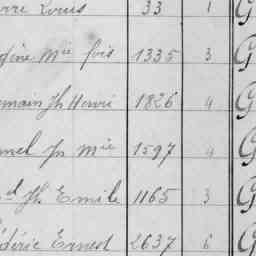 rre Louis 33 1 G
dine Mie fois 1335 3 G
main Jh Henri 1826 4 G
nel Jn Mie 1597 4 G
d Jh Emile 1165 3 G
édéric Ernest 2637 6 G